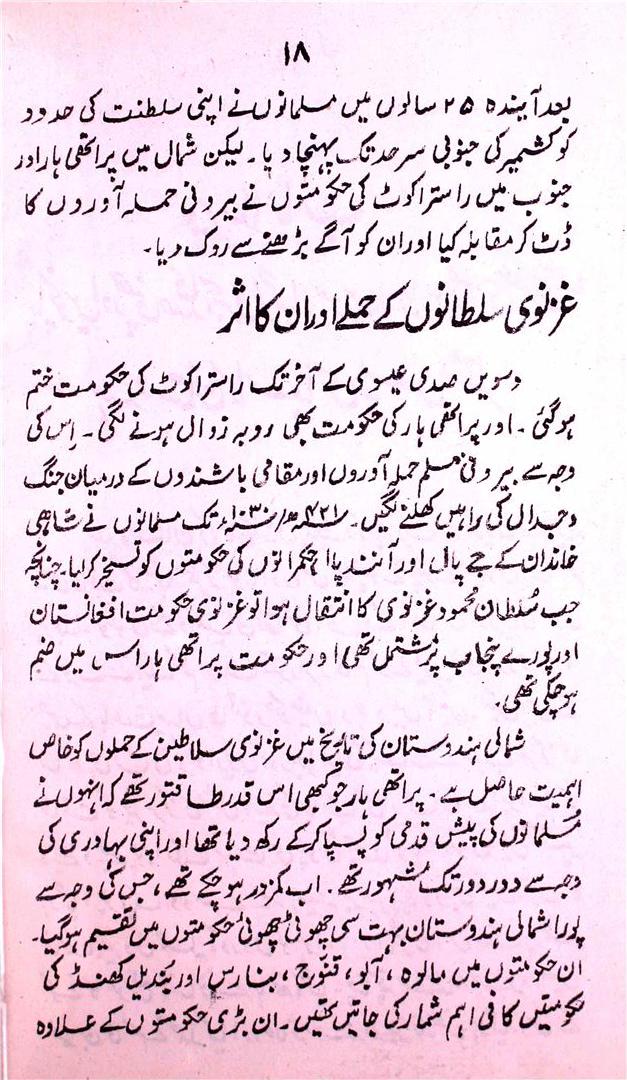 ۱۸
بعد آیندہ ۲۵ سالوں میں مسلمانوں نے اپنی سلطنت کی حدود
کو کشمیر کی جنوبی سرحد تک پہنچا دیا۔ لیکن شمال میں پراتھی ہار اور
جنوب میں راسٹرا کوٹ کی حکومتوں نے بیرونی حملہ آوروں کا
ڈٹ کر مقابلہ کیا اور ان کو آگے بڑھنے سے روک دیا۔
غزنوی سلطانوں کے حملے اور ان کا اثر
دسویں صدی عیسوی کے آخر تک راسٹرا کوٹ کی حکومت ختم
ہو گئی۔ اور پراتھی ہار کی حکومت بھی روبہ زوال ہونے لگی۔ اِس کی
وجہ سے بیرونی مسلم حملہ آوروں اور مقامی باشندوں کے درمیان جنگ
و جدال کی راہیں کھلنے لگیں۔ ۴۲۱ھ/۱۰۳۰ء تک مسلمانوں نے شاہی
خاندان کے جے پال اور آنند پال حکمرانوں کی حکومتوں کو تسخیر کر لیا۔ چنانچہ
جب سُلطان محمود غزنوی کا انتقال ہوا تو غزنوی حکومت افغانستان
اور پورے پنجاب پر مُشتمل تھی اور حکومت پراتھی ہار اس میں ضم
ہو چکی تھی۔
شمالی ہندوستان کی تاریخ میں غزنوی سلاطین کے حملوں کو خاص
اہمیت حاصل ہے۔ پراتھی ہار جو کبھی اس قدر طاقتور تھے کہ انہوں نے
مُسلمانوں کی پیش قدمی کو پسپا کر کے رکھ دیا تھا اور اپنی بہادری کی
وجہ سے دور دور تک مُشہور تھے۔ اب کمزور ہو چکے تھے، جس کی وجہ سے
پورا شمالی ہندوستان بہت سی چھوٹی چھوٹی حکومتوں میں تقسیم ہو گیا۔
ان حکومتوں میں مالوہ، آبو، قنوّج، بنارس اور بُندیل کھنڈ کی
حکومتیں کافی اہم شمار کی جاتیں تھیں۔ ان بڑی حکومتوں کے علاوہ